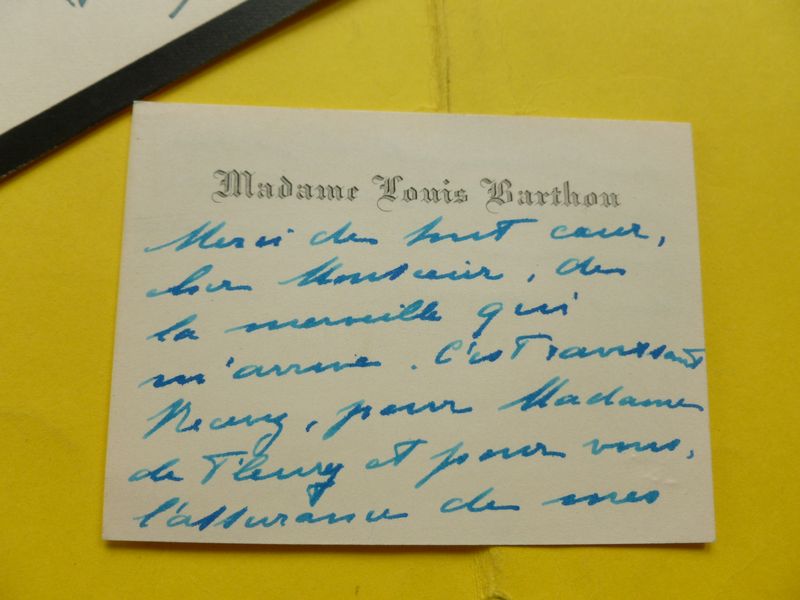 Madame Louis Barthou
Merci de tout cœur,
cher Monsieur, de
la merveille qui
m'arrive. C'est ravissant
Recevez, pour Madame
de Fleury et pour vous,
l'assurance de mes